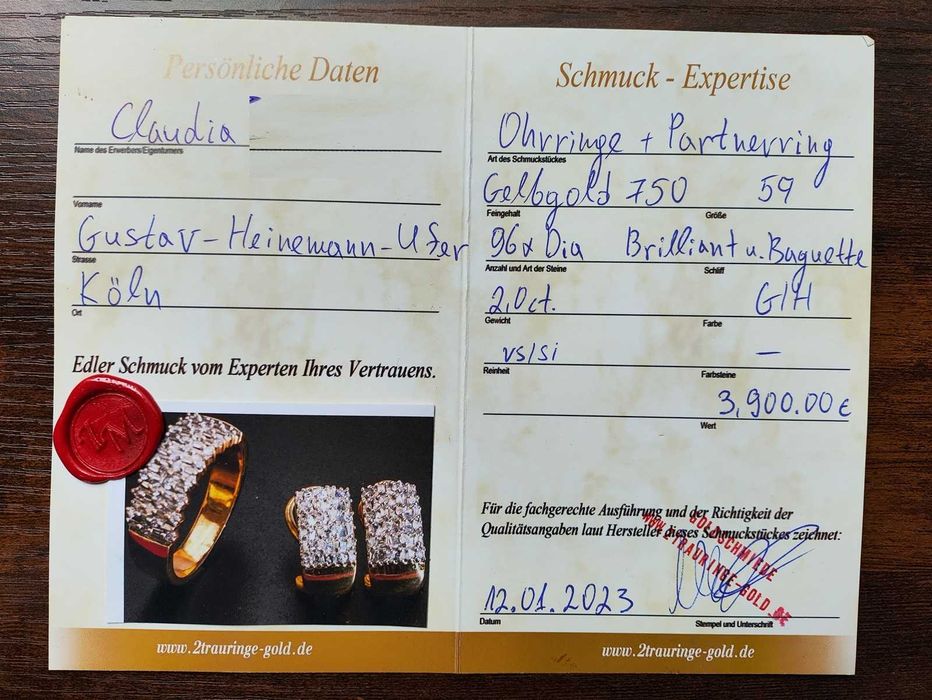 Persönliche Daten
Claudia
Name des Erwerbers/Eigentümers
Vorname
Gustav-Heinemann-Ufer
Strasse
Köln
Ort
Edler Schmuck vom Experten Ihres Vertrauens.
www.2trauringe-gold.de
Schmuck - Expertise
Ohrringe + Partnerring
Art des Schmuckstückes
Gelbgold 750 59
Feingehalt Größe
96x Dia Brilliant u. Baguette
Anzahl und Art der Steine Schliff
2,0ct. G/H
Gewicht Farbe
vs/si —
Reinheit Farbsteine
3,900.00 €
Wert
Für die fachgerechte Ausführung und der Richtigkeit der
Qualitätsangaben laut Hersteller dieses Schmuckstückes zeichnet:
GOLDSCHMIEDE
WWW.2TRAURINGE-GOLD.DE
12.01.2023
Datum Stempel und Unterschrift
www.2trauringe-gold.de